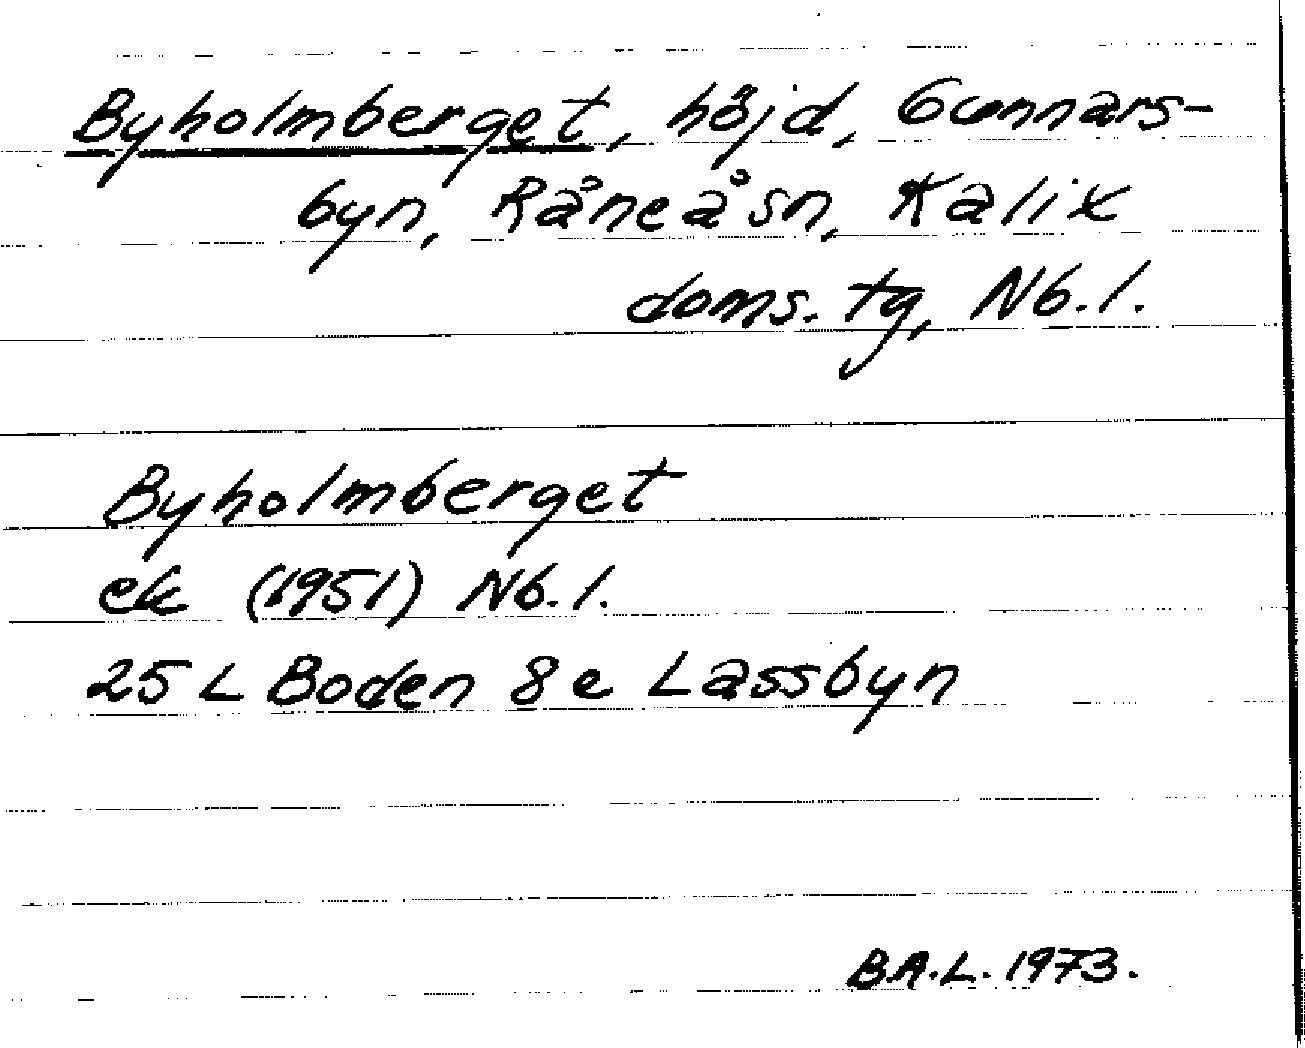 Byholmberget, höjd, Gunnars-
byn, Råneå sn, Kalix
doms. tg, Nb. l.
Byholmberget
ek (1951) Nb. l.
25 L Boden 8 e Lassbyn
B.A.L. 1973.